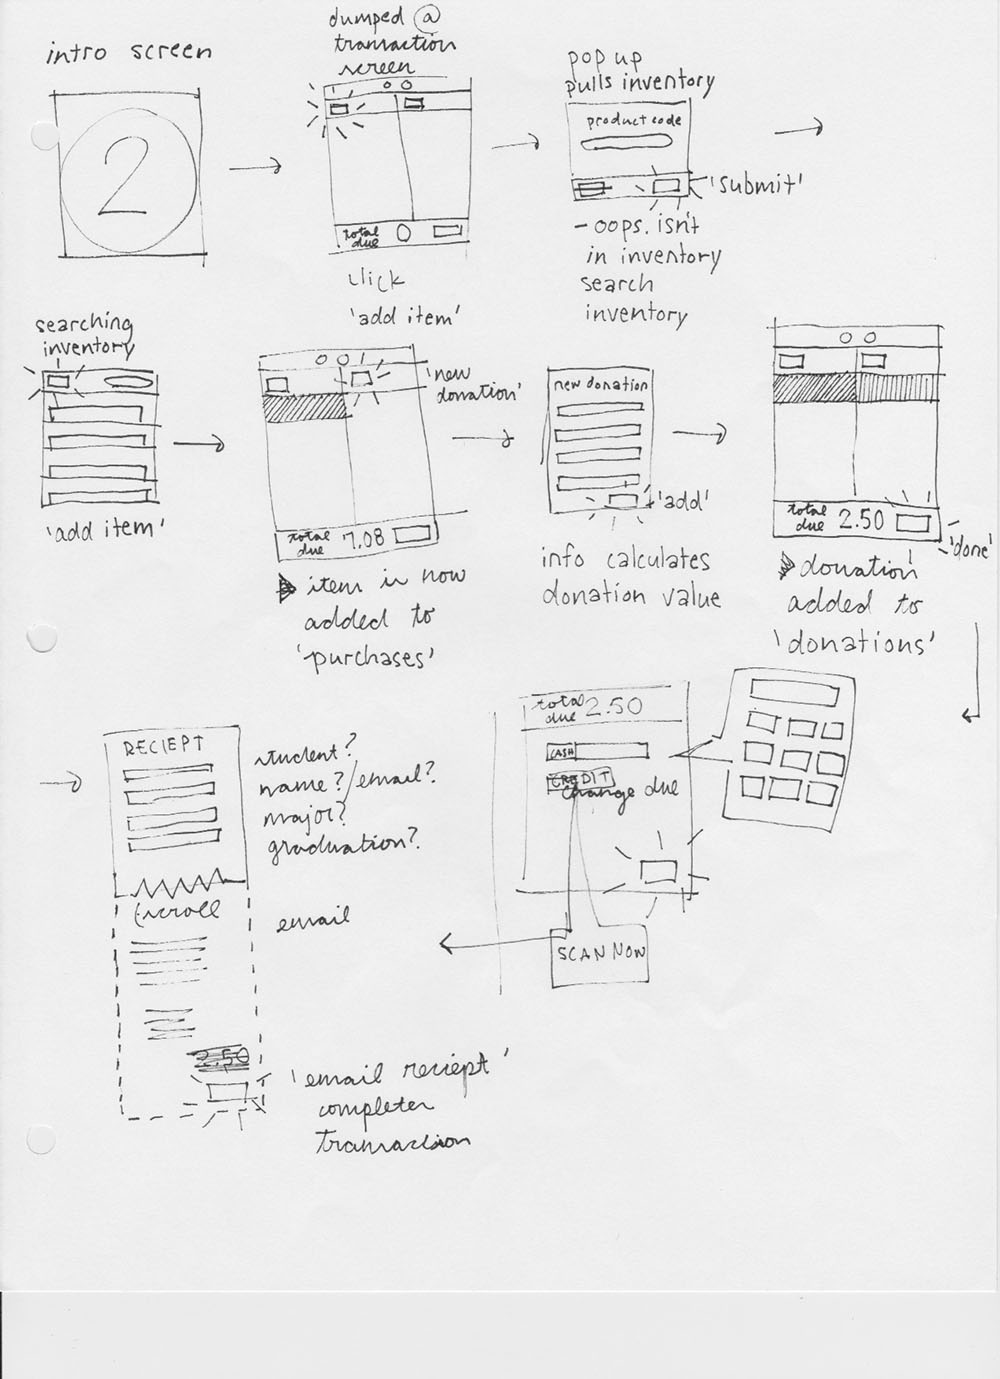 intro screen
2
dumped @
transaction
screen
total
due 0
click
'add item'
pop up
pulls inventory
product code
'submit'
- oops. isn't
in inventory
search
inventory
searching
inventory
'add item'
'new
donation'
total
due 7.08
item is now
added to
'purchases'
new donation
'add'
info calculates
donation value
total
due 2.50
'done'
donation
added to
'donations'
total
due 2.50
CASH
CREDIT
change due
SCAN NOW
RECIEPT
student?
name?/email?
major?
graduation?
(scroll
email
2.50
'email reciept'
completes
transaction